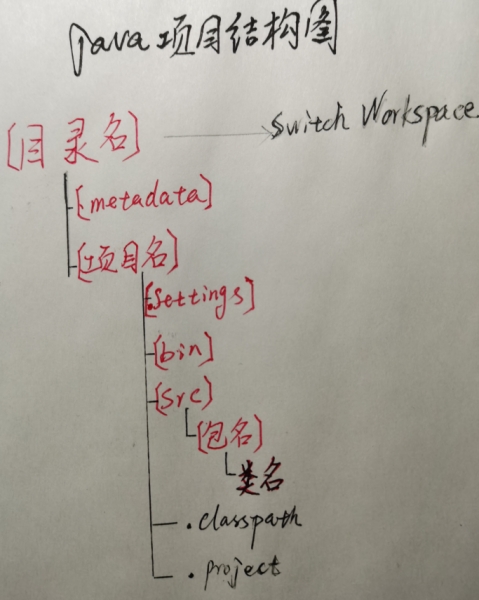 java项目结构图
[目录名] → Switch Workspace
[.metadata]
[项目名]
[.settings]
[bin]
[src]
[包名]
类名
.classpath
.project